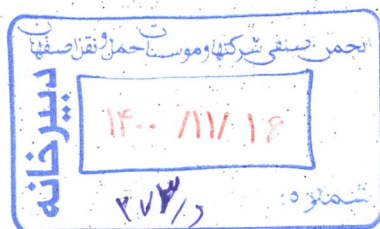 انجمن صنفی شرکتها و موسسات حمل و نقل اصفهان
دبیرخانه
۱۴۰۰ /۱۱/ ۱۶
شماره:
۳۷۳/د